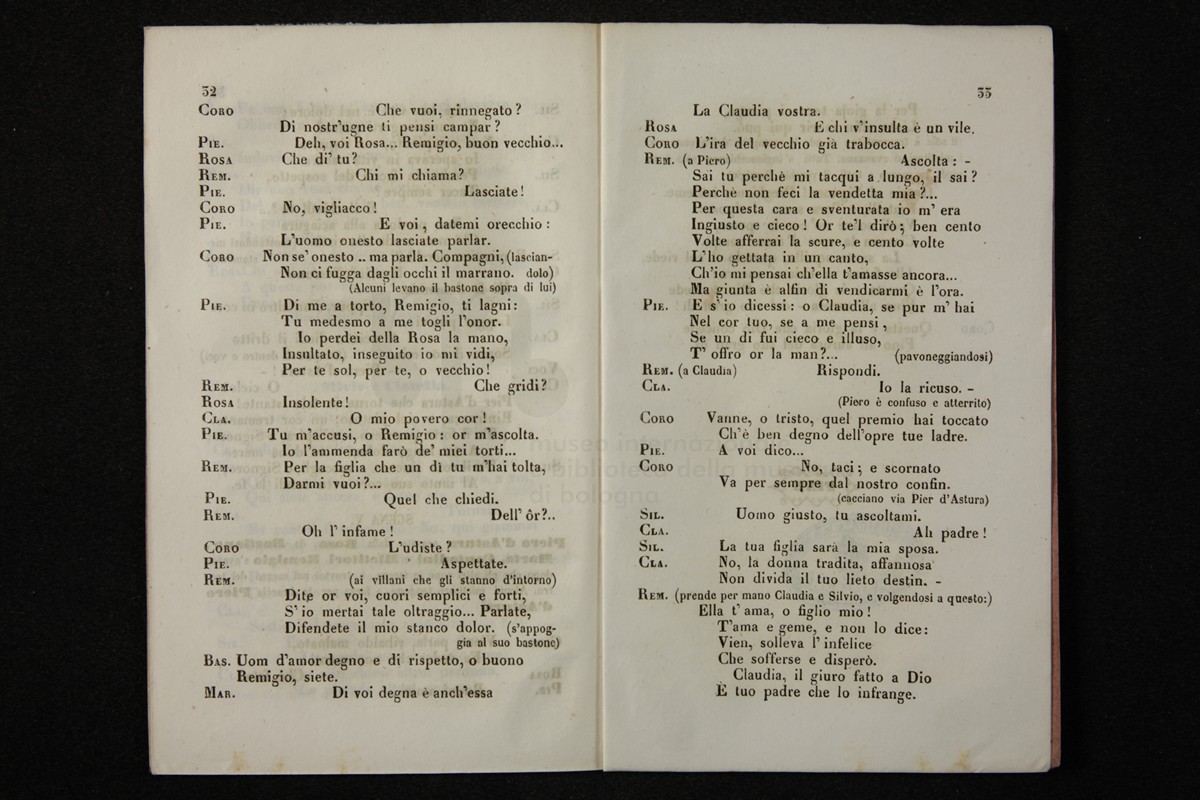 32
CORO Che vuoi, rinnegato?
Di nostr'ugne ti pensi campar?
PIE. Deh, voi Rosa... Remigio, buon vecchio...
ROSA Che di' tu?
REM. Chi mi chiama?
PIE. Lasciate!
CORO No, vigliacco!
PIE. E voi, datemi orecchio:
L'uomo onesto lasciate parlar.
CORO Non se' onesto .. ma parla. Compagni, (lascian-
Non ci fugga dagli occhi il marrano. dolo)
(Alcuni levano il bastone sopra di lui)
PIE. Di me a torto, Remigio, ti lagni:
Tu medesmo a me togli l'onor.
Io perdei della Rosa la mano,
Insultato, inseguito io mi vidi,
Per te sol, per te, o vecchio!
REM. Che gridi?
ROSA Insolente!
CLA. O mio povero cor!
PIE. Tu m'accusi, o Remigio: or m'ascolta.
Io l'ammenda farò de' miei torti...
REM. Per la figlia che un dì tu m'hai tolta,
Darmi vuoi?...
PIE. Quel che chiedi.
REM. Dell' ôr?..
Oh l' infame!
CORO L'udiste?
PIE. Aspettate.
REM. (ai villani che gli stanno d'intorno)
Dite or voi, cuori semplici e forti,
S' io mertai tale oltraggio... Parlate,
Difendete il mio stanco dolor. (s'appog-
gia al suo bastone)
BAS. Uom d'amor degno e di rispetto, o buono
Remigio, siete.
MAR. Di voi degna è anch'essa
33
La Claudia vostra.
ROSA E chi v'insulta è un vile.
CORO L'ira del vecchio già trabocca.
REM. (a Piero) Ascolta: -
Sai tu perchè mi tacqui a lungo, il sai?
Perchè non feci la vendetta mia?...
Per questa cara e sventurata io m' era
Ingiusto e cieco! Or te'l dirò; ben cento
Volte afferrai la scure, e cento volte
L'ho gettata in un canto,
Ch'io mi pensai ch'ella t'amasse ancora...
Ma giunta è alfin di vendicarmi è l'ora.
PIE. E s' io dicessi: o Claudia, se pur m' hai
Nel cor tuo, se a me pensi,
Se un di fui cieco e illuso,
T' offro or la man?... (pavoneggiandosi)
REM. (a Claudia) Rispondi.
CLA. Io la ricuso. -
(Piero è confuso e atterrito)
CORO Vanne, o tristo, quel premio hai toccato
Ch'è ben degno dell'opre tue ladre.
PIE. A voi dico...
CORO No, taci; e scornato
Va per sempre dal nostro confin.
(cacciano via Pier d'Astura)
SIL. Uomo giusto, tu ascoltami.
CLA. Ah padre!
SIL. La tua figlia sarà la mia sposa.
CLA. No, la donna tradita, affannosa
Non divida il tuo lieto destin. -
REM. (prende per mano Claudia e Silvio, e volgendosi a questo:)
Ella t' ama, o figlio mio!
T'ama e geme, e non lo dice:
Vien, solleva l' infelice
Che sofferse e disperò.
Claudia, il giuro fatto a Dio
È tuo padre che lo infrange.
museo internazionale
e biblioteca della musica
di bologna